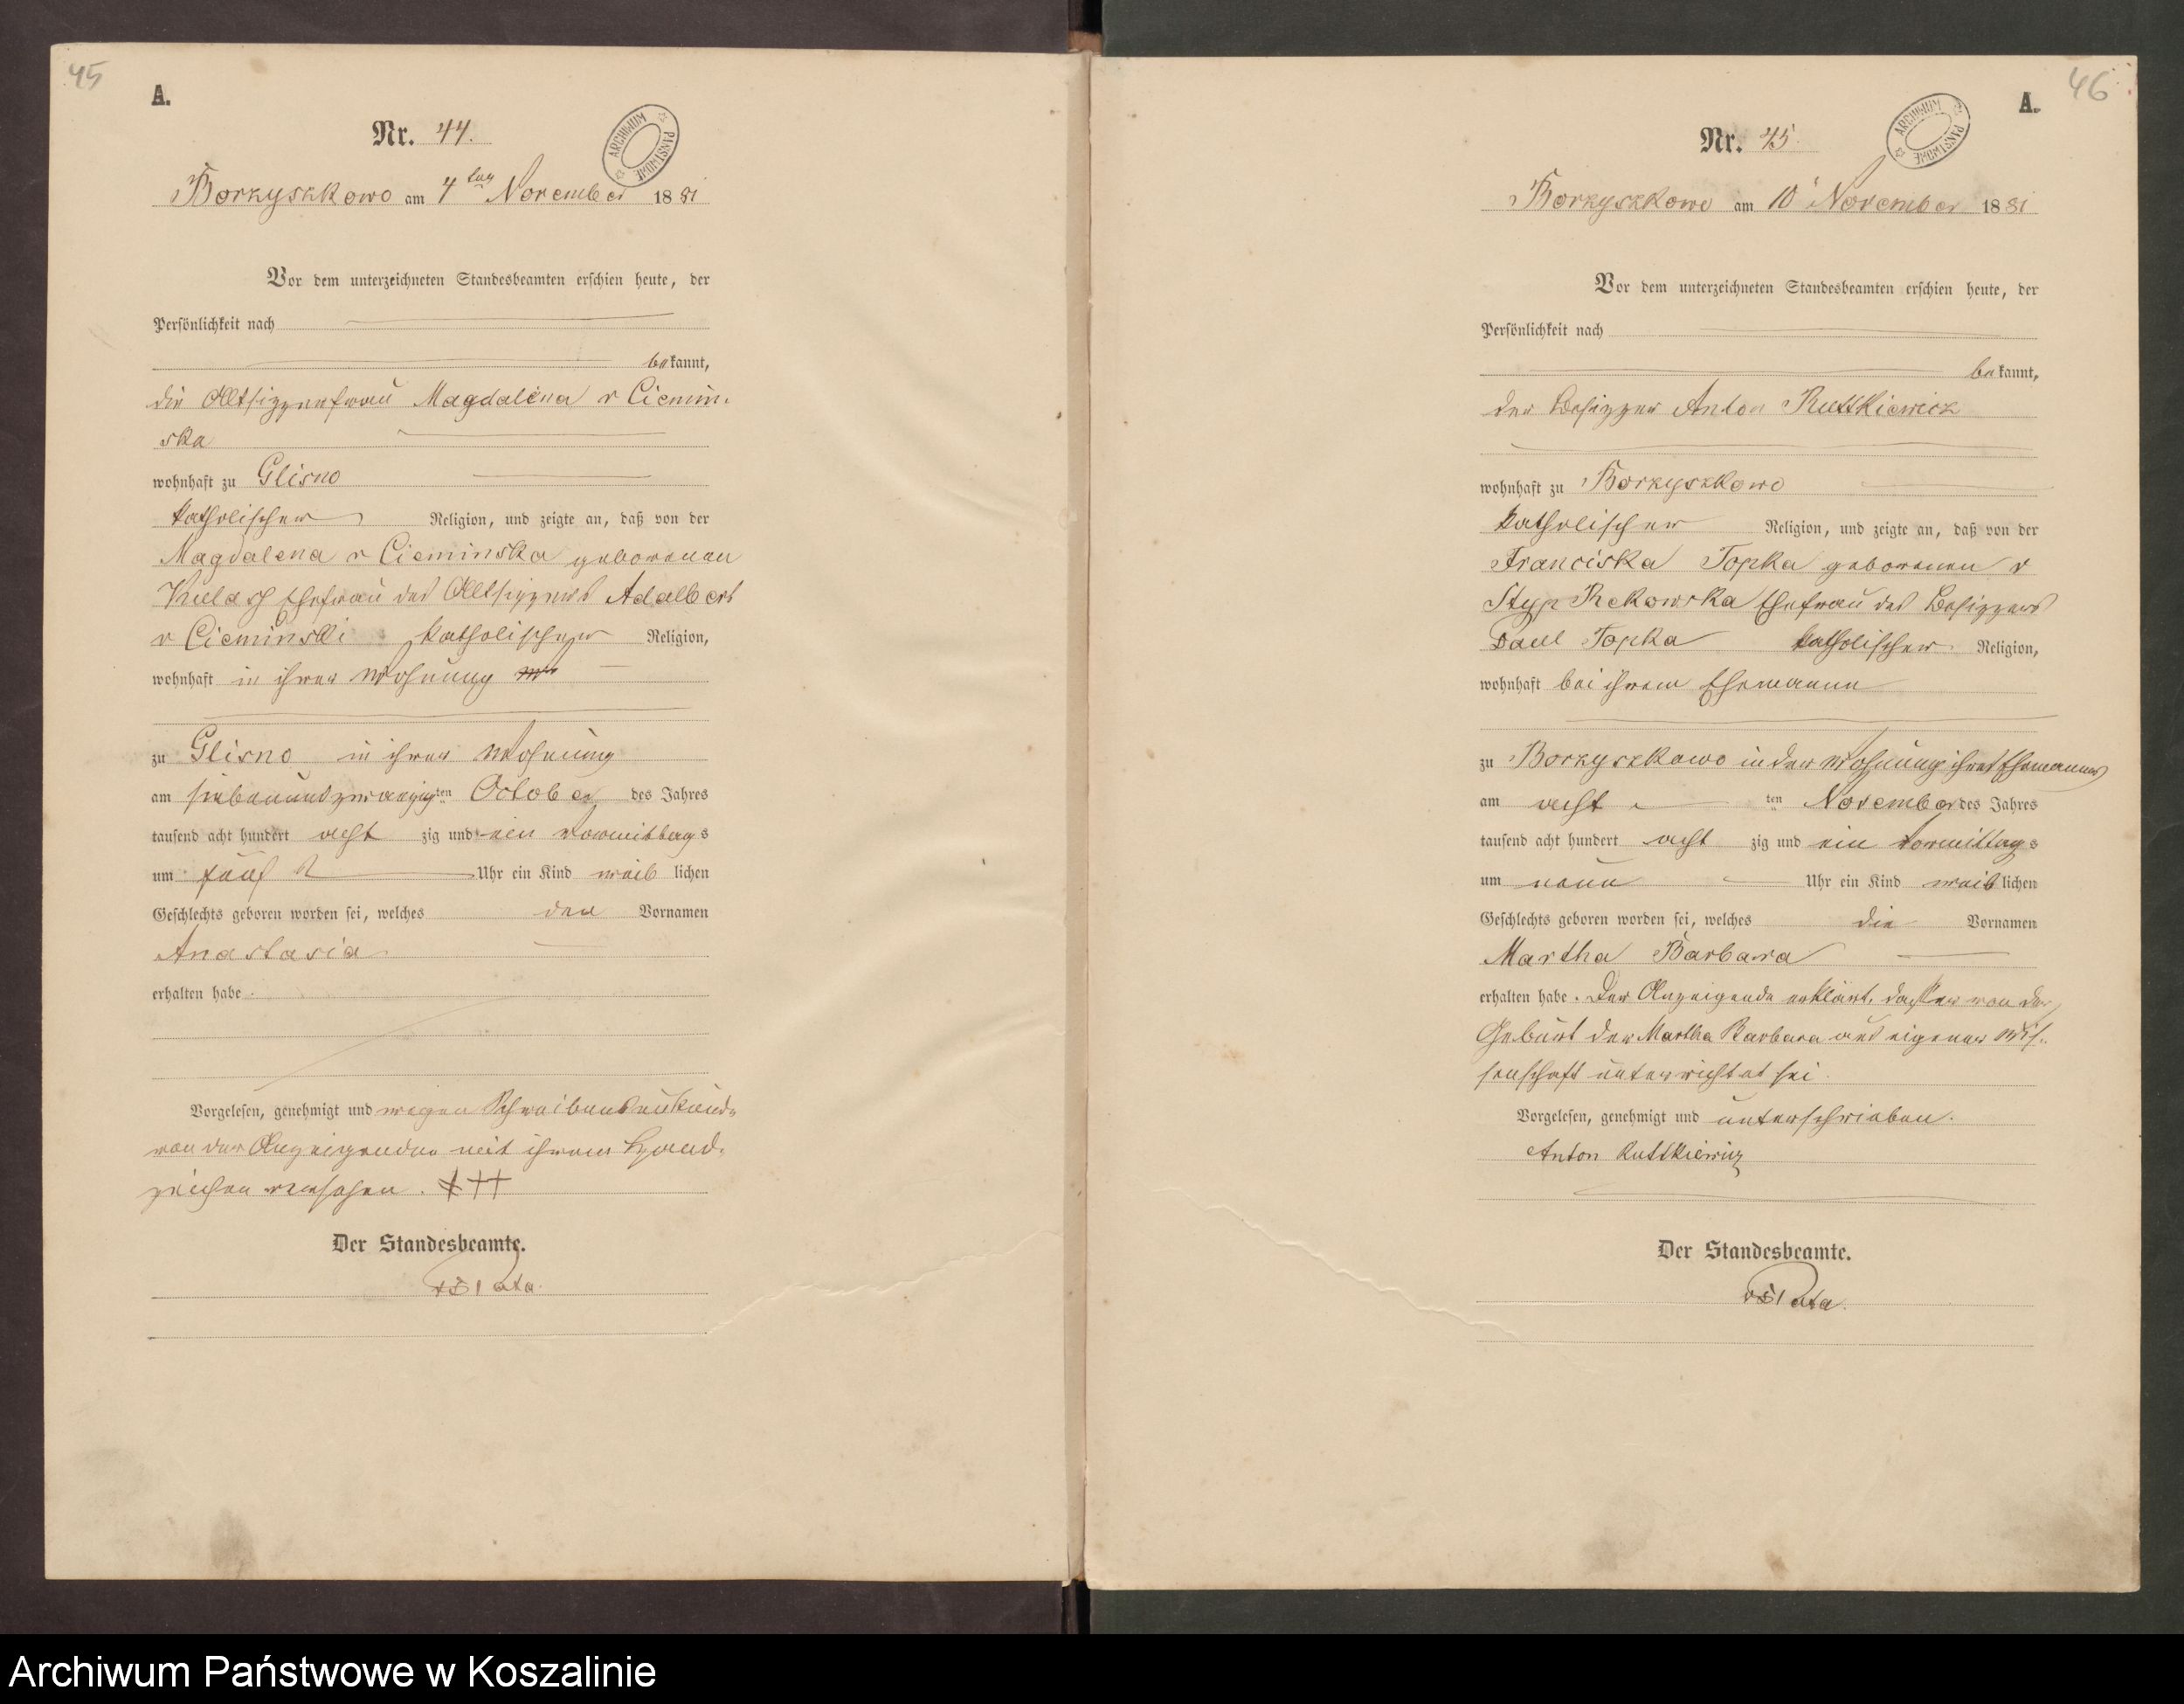 45
A.
Nr. 44.
ARCHIWUM PAŃSTWOWE
Borzyszkowo am 4ten November 1881
Vor dem unterzeichneten Standesbeamten erschien heute, der
Persönlichkeit nach
bekannt,
die Altsitzerfrau Magdalena v Ciemin-
ska
wohnhaft zu Glisno
katholischer Religion, und zeigte an, daß von der
Magdalena v Cieminska geborenen
Kulas Ehefrau des Altsitzers Adalbert
v Cieminski katholischer Religion,
wohnhaft in ihrer Wohnung
zu Glisno in ihrer Wohnung
am siebenundzwanzigsten October des Jahres
tausend acht hundert acht zig und ein Vormittags
um fünf Uhr ein Kind weib lichen
Geschlechts geboren worden sei, welches den Vornamen
Anastasia
erhalten habe.
Vorgelesen, genehmigt und wegen Schreibensunkunde
von der Anzeigenden mit ihrem Hand-
zeichen versehen. +++
Der Standesbeamte.
46
A.
Nr. 45.
ARCHIWUM PAŃSTWOWE
Borzyszkowo am 10 November 1881
Vor dem unterzeichneten Standesbeamten erschien heute, der
Persönlichkeit nach
bekannt,
der Besitzer Anton Ruttkiewicz
wohnhaft zu Borzyszkowo
katholischer Religion, und zeigte an, daß von der
Franciska Topka geborenen v
Styp Rekowska Ehefrau des Besitzers
Paul Topka katholischer Religion,
wohnhaft bei ihrem Ehemann
zu Borzyszkowo in der Wohnung ihres Ehemannes
am acht ten November des Jahres
tausend acht hundert acht zig und ein Vormittags
um neun Uhr ein Kind weib lichen
Geschlechts geboren worden sei, welches die Vornamen
Martha Barbara
erhalten habe. Der Anzeigende erklärt, dass er von der
Geburt der Martha Barbara aus eigener Wis-
senschaft unterrichtet sei.
Vorgelesen, genehmigt und unterschrieben.
Anton Ruttkiewicz
Der Standesbeamte.
Archiwum Państwowe w Koszalinie